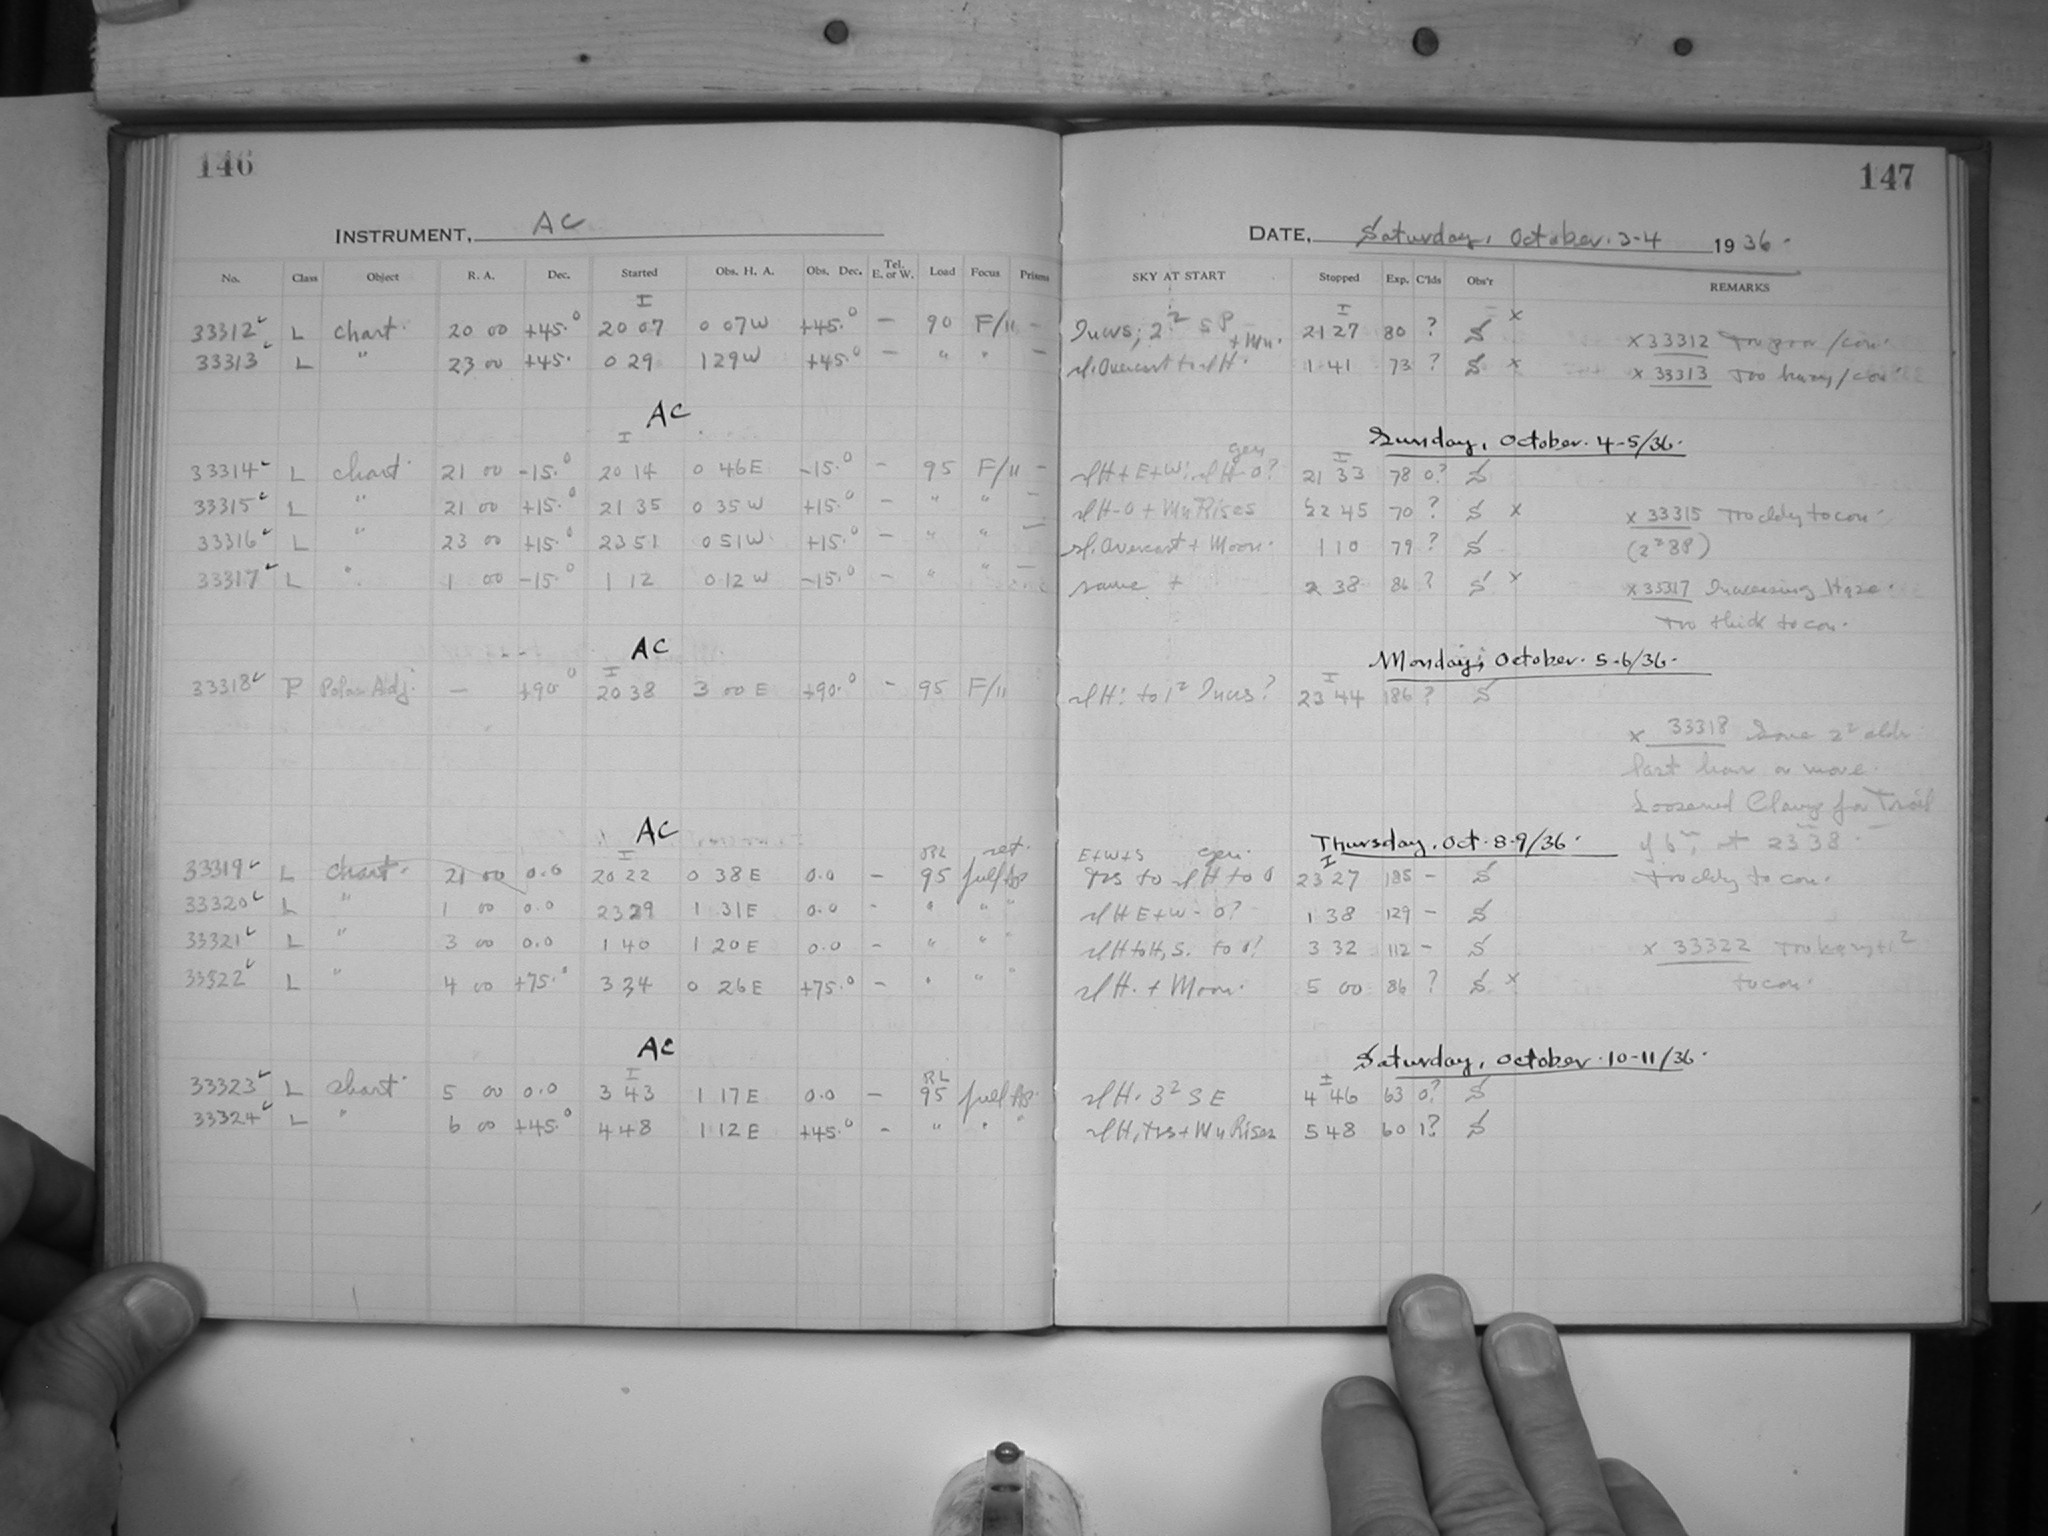 146
INSTRUMENT, AC
No. Class Object R. A. Dec. Started Obs. H. A. Obs. Dec. Tel. E. or W. Load Focus Prisms
I
33312 L Chart. 20 00 +45.° 20 07 0 07 W +45.° - 90 F/11 -
33313 L " 23 00 +45. 0 29 1 29 W +45.° - " " -
AC
I
33314 L Chart. 21 00 -15.° 20 14 0 46 E -15.° - 95 F/11 -
33315 L " 21 00 +15.° 21 35 0 35 W +15.° - " " -
33316 L " 23 00 +15.° 23 51 0 51 W +15.° - " " -
33317 L " 1 00 -15.° 1 12 0 12 W -15.° - " " -
AC
I
33318 P Polar Adj. - +90.° 20 38 3 00 E +90.° - 95 F/11
AC
I RL
33319 L Chart. 21 00 0.0 20 22 0 38 E 0.0 - 95 full Ap
33320 L " 1 00 0.0 23 29 1 31 E 0.0 - " " "
33321 L " 3 00 0.0 1 40 1 20 E 0.0 - " " "
33322 L " 4 00 +75.° 3 34 0 26 E +75.° - " " "
AC
I RL
33323 L Chart. 5 00 0.0 3 43 1 17 E 0.0 - 95 full Ap.
33324 L " 6 00 +45.° 4 48 1 12 E +45.° - " " "
147
DATE, Saturday, October. 3-4 1936.
SKY AT START Stopped Exp. C'lds Obs'r REMARKS
I
+ Mn. 21 27 80 ? S x x 33312
1 41 73 ? S x x 33313 Too heavy/con.
Sunday, October. 4-5/36.
gen I
slH + E+W; slH-0? 21 33 78 0? S
slH-0 + Mn Rises 22 45 70 ? S x x 33315 Too cldy to con.
sl. Overcast + Moon. 1 10 79 ? S (2²88)
same + 2 38 86 ? S x x 33317 Increasing Haze.
Too thick to con.
Monday, October. 5-6/36.
I
slH. to 1² Incus? 23 44 186 ? S
x 33318 Some 2² clds
last hour or more.
Loosened Clamp for Trail
Thursday. Oct. 8-9/36. of 6ᵐ, at 2338.
E+W+S gen. I
Trs to slH to 0 23 27 185 - S Too cldy to con.
slH E+W - 0? 1 38 129 - S
slH to H, S. to 0? 3 32 112 - S x 33322
slH. + Moon. 5 00 86 ? S x to con.
Saturday, October. 10-11/36.
I
slH. 3² SE 4 46 63 0? S
slH, Trs + Mn Rises 5 48 60 1? S